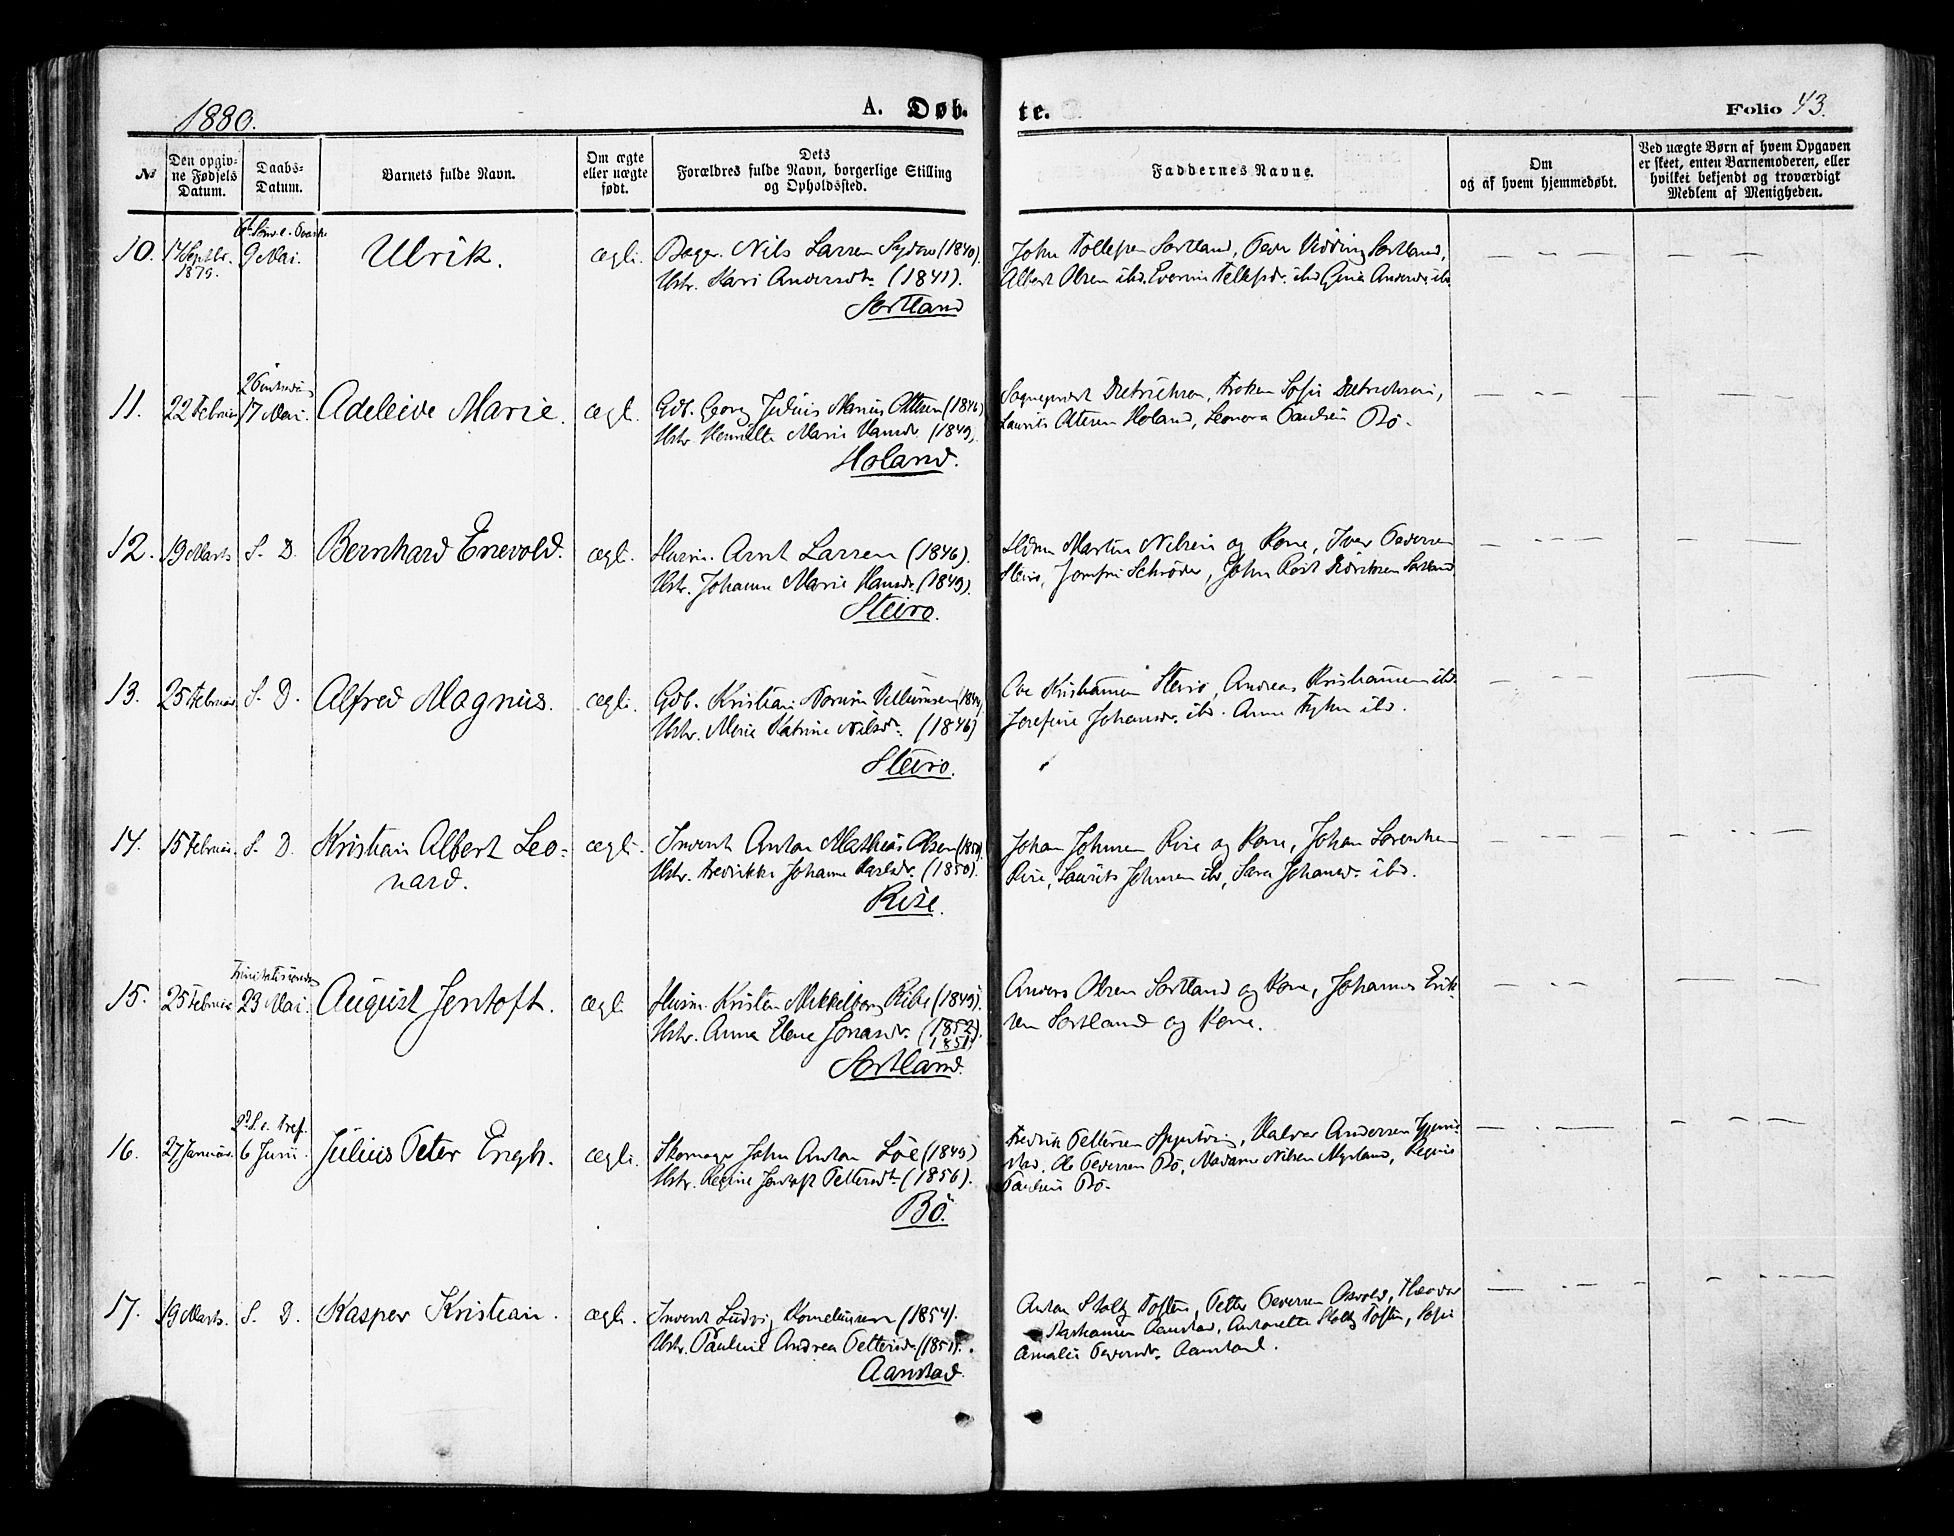 1880.
A. Døb-
te.
Folio 43.
No
Den opgiv-
ne Fødsels
Datum.
Daabs-
Datum.
Barnets fulde Navn.
Om ægte
eller uægte
født.
Dets
Forældres fulde Navn, borgerlige Stilling
og Opholdssted.
Faddernes Navne.
Om
og af hvem hjemmedøbt.
Ved uægte Børn af hvem Opgaven
er skeet, enten Barnemoderen, eller
hvilket bekjendt og troværdigt
Medlem af Menigheden.
10. 17 Septbr. 9 Mai. Ulrik. ægt. Nils Larsen (1840).
1879.
Hstr. Kari Andersdtr. (1841).
Sortland
John Tollefsen Sortland, Sortland,
Albert Olsen ibd.
11. 22 Februar 17 Mai. Adeleive Marie. ægt. Gdb. Georg Julius Marius Ottesen (1846)
Hstr. Marie Hansdr. (1849).
Holand.
Sogneprest Dietrichson, Frøken Sofie Dietrichson,
Laurits Ottesen Holand, Leonora Paulsen Bö.
12. 19 Marts S. D. Bernhard Enevold. ægt. Husm. Arnt Larsen (1846).
Hstr. Johanna Marie Hansdr. (1849).
Steiro.
Martin Nilsen og Kone, Iver Pedersen
Steiro, Jomfru Schrøder, John Rist Sortland
13. 25 Februar S. D. Alfred Magnus. ægt. Gdb. Kristian
Hstr. Marie Katrine Nilsdr. (1846)
Steiro.
Ove Kristiansen Steiro, Andreas Kristiansen ibd.
Josefine Johansdr. ibd. Anne ibd.
14. 15 Februar. S. D. Kristian Albert Leo- ægt. Inderst Anton Mathias Olsen
nard.
Hstr. Fredrikke Johanna Karlsdr. (1850).
Rise.
Johan Johnsen Rise og Kone, Johan Sörensen
Rise, Laurits Johnsen ibd, Sara Johansdr. ibd.
Trinitatissöndag
15. 25 Februar 23 Mai. August Jentoft. ægt. Husm. Kristen Mikkelborg Ribe (1849).
Hstr. Anna Elene Jonasdr. (1852).
1851.
Sortland.
Anders Olsen Sortland og Kone, Johannes Erik-
sen Sortland og Kone.
2d S. e. Tref.
16. 27 Januar. 6 Juni. Julius Peter Engh. ægt. Skomager John Anton Löe (1849)
Hstr. Regine Jentoft Pettersdtr (1856).
Bö.
Fredrik Pettersen, Halvor Andersen
Ole Pedersen Bö, Madame Nilsen Nyeland, Regine
Paulsen Bö.
17. 19 Marts. S. D. Kasper Kristian. ægt. Inderst Ludvig Korneliussen (1854).
Hstr. Pauline Andrea Pettersdr. (1851).
Aanstad.
Anton Stoltz Toften, Petter Pedersen Osvold,
Aanstad, Antonette Stoltz Toften, Sofie
Amalie Pedersdr. Aanstad.